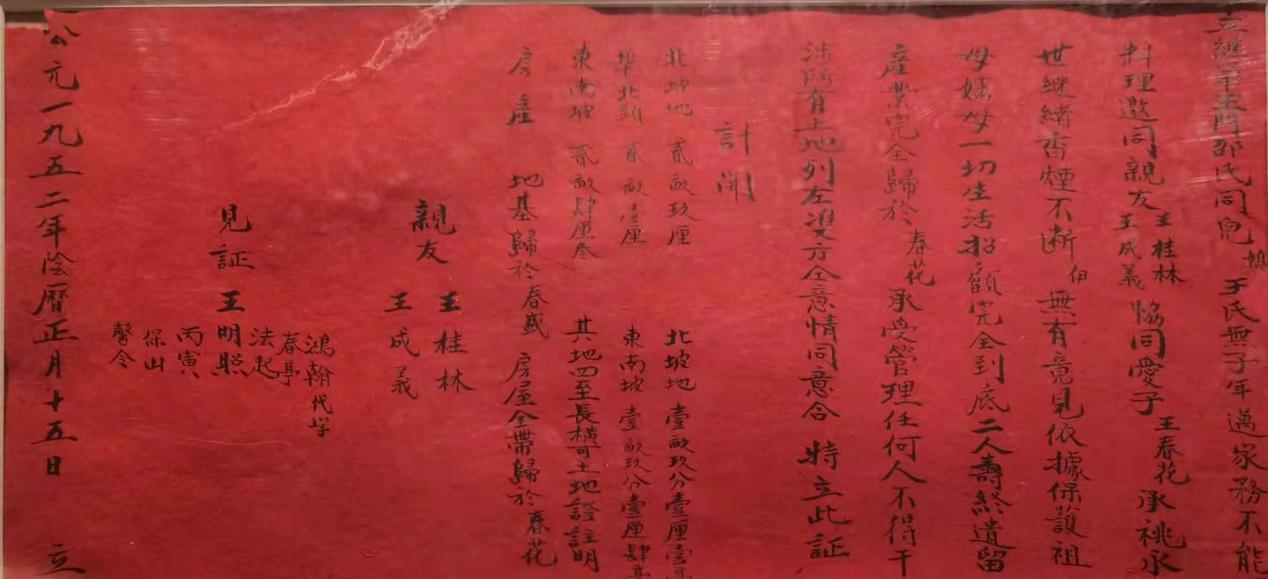 立繼單王門邵氏同兒媳王氏無子年邁家務不能
料理邀同親友王桂林王成義協同愛子王春花承祧永
世継緒香煙不断伯無有竟見依據保護祖
母嬸母一切生活招顧完全到底二人壽終遺留
產業完全歸於春花承受管理任何人不得干
涉所有土地列左雙方仝意情同意合特立此証
計開
北坡地貳畝玖厘 北坡地壹畝玖分壹厘壹毫
北頭貳畝壹厘 東南坡壹畝玖分壹厘肆毫
東南坡貳畝肆厘叁 其地四至長橫可土地證註明
房產地基歸於春盛房屋全帶歸於春花
親友王桂林
王成義
鴻翰代字
春亭
法起
見証王明照
丙寅
保山
馨令
公元一九五二年陰曆正月十五日 立